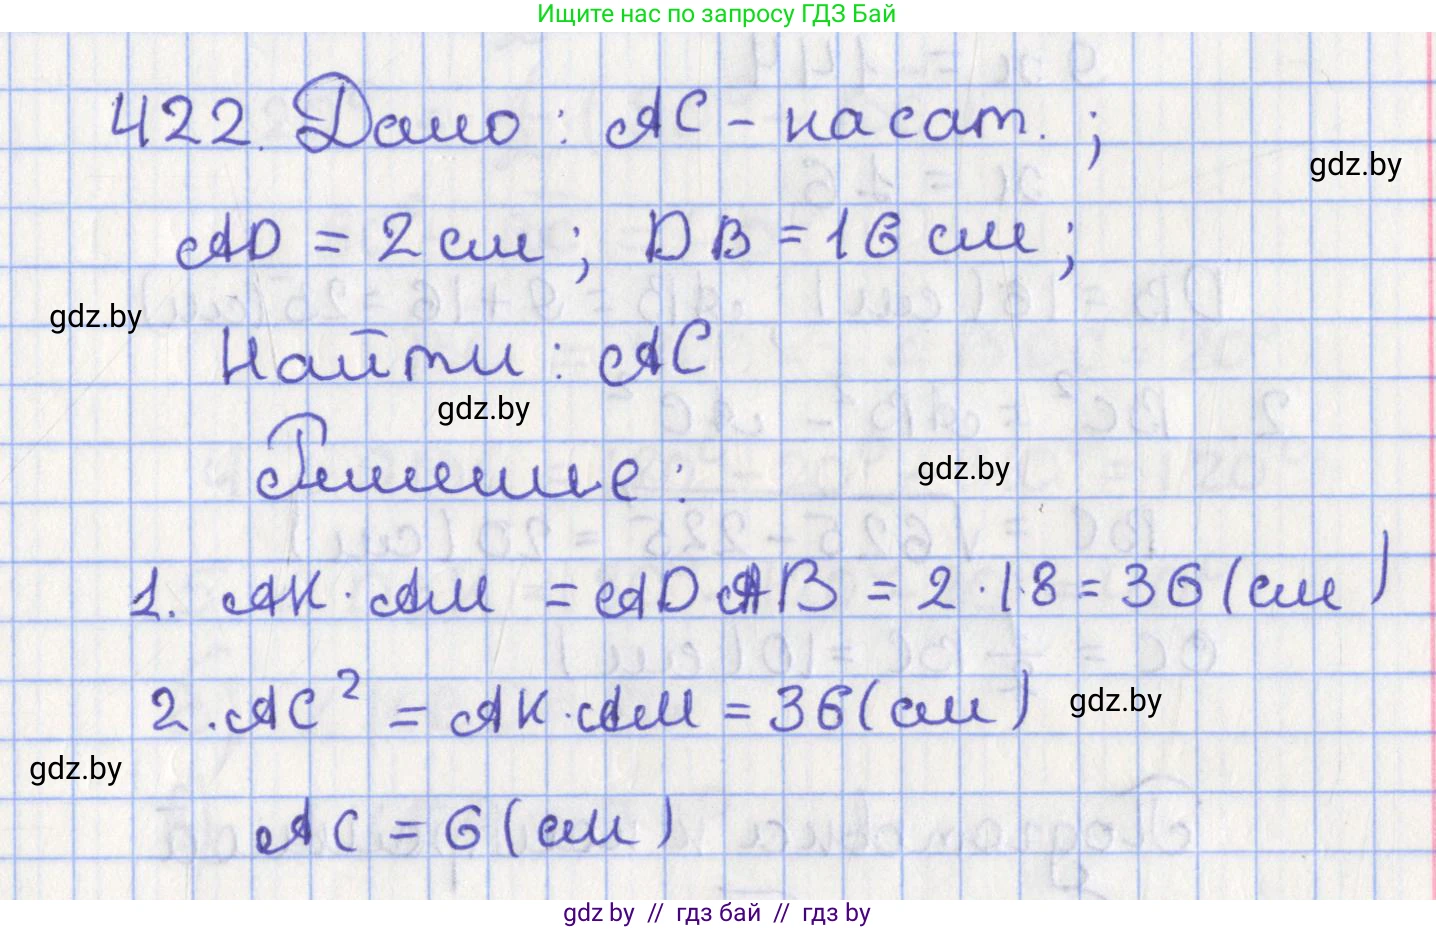 Ищите нас по запросу ГДЗ Бай
422. Дано: AC - касат.;
gdz.by
AD = 2 см; DB = 16 см;
gdz.by
Найти: AC
gdz.by
Решение:
gdz.by
1. AK · AM = AD AB = 2 · 18 = 36 (см)
2. AC² = AK · AM = 36 (см)
gdz.by
gdz.by
AC = 6 (см)
gdz by // гдз бай // гдз by